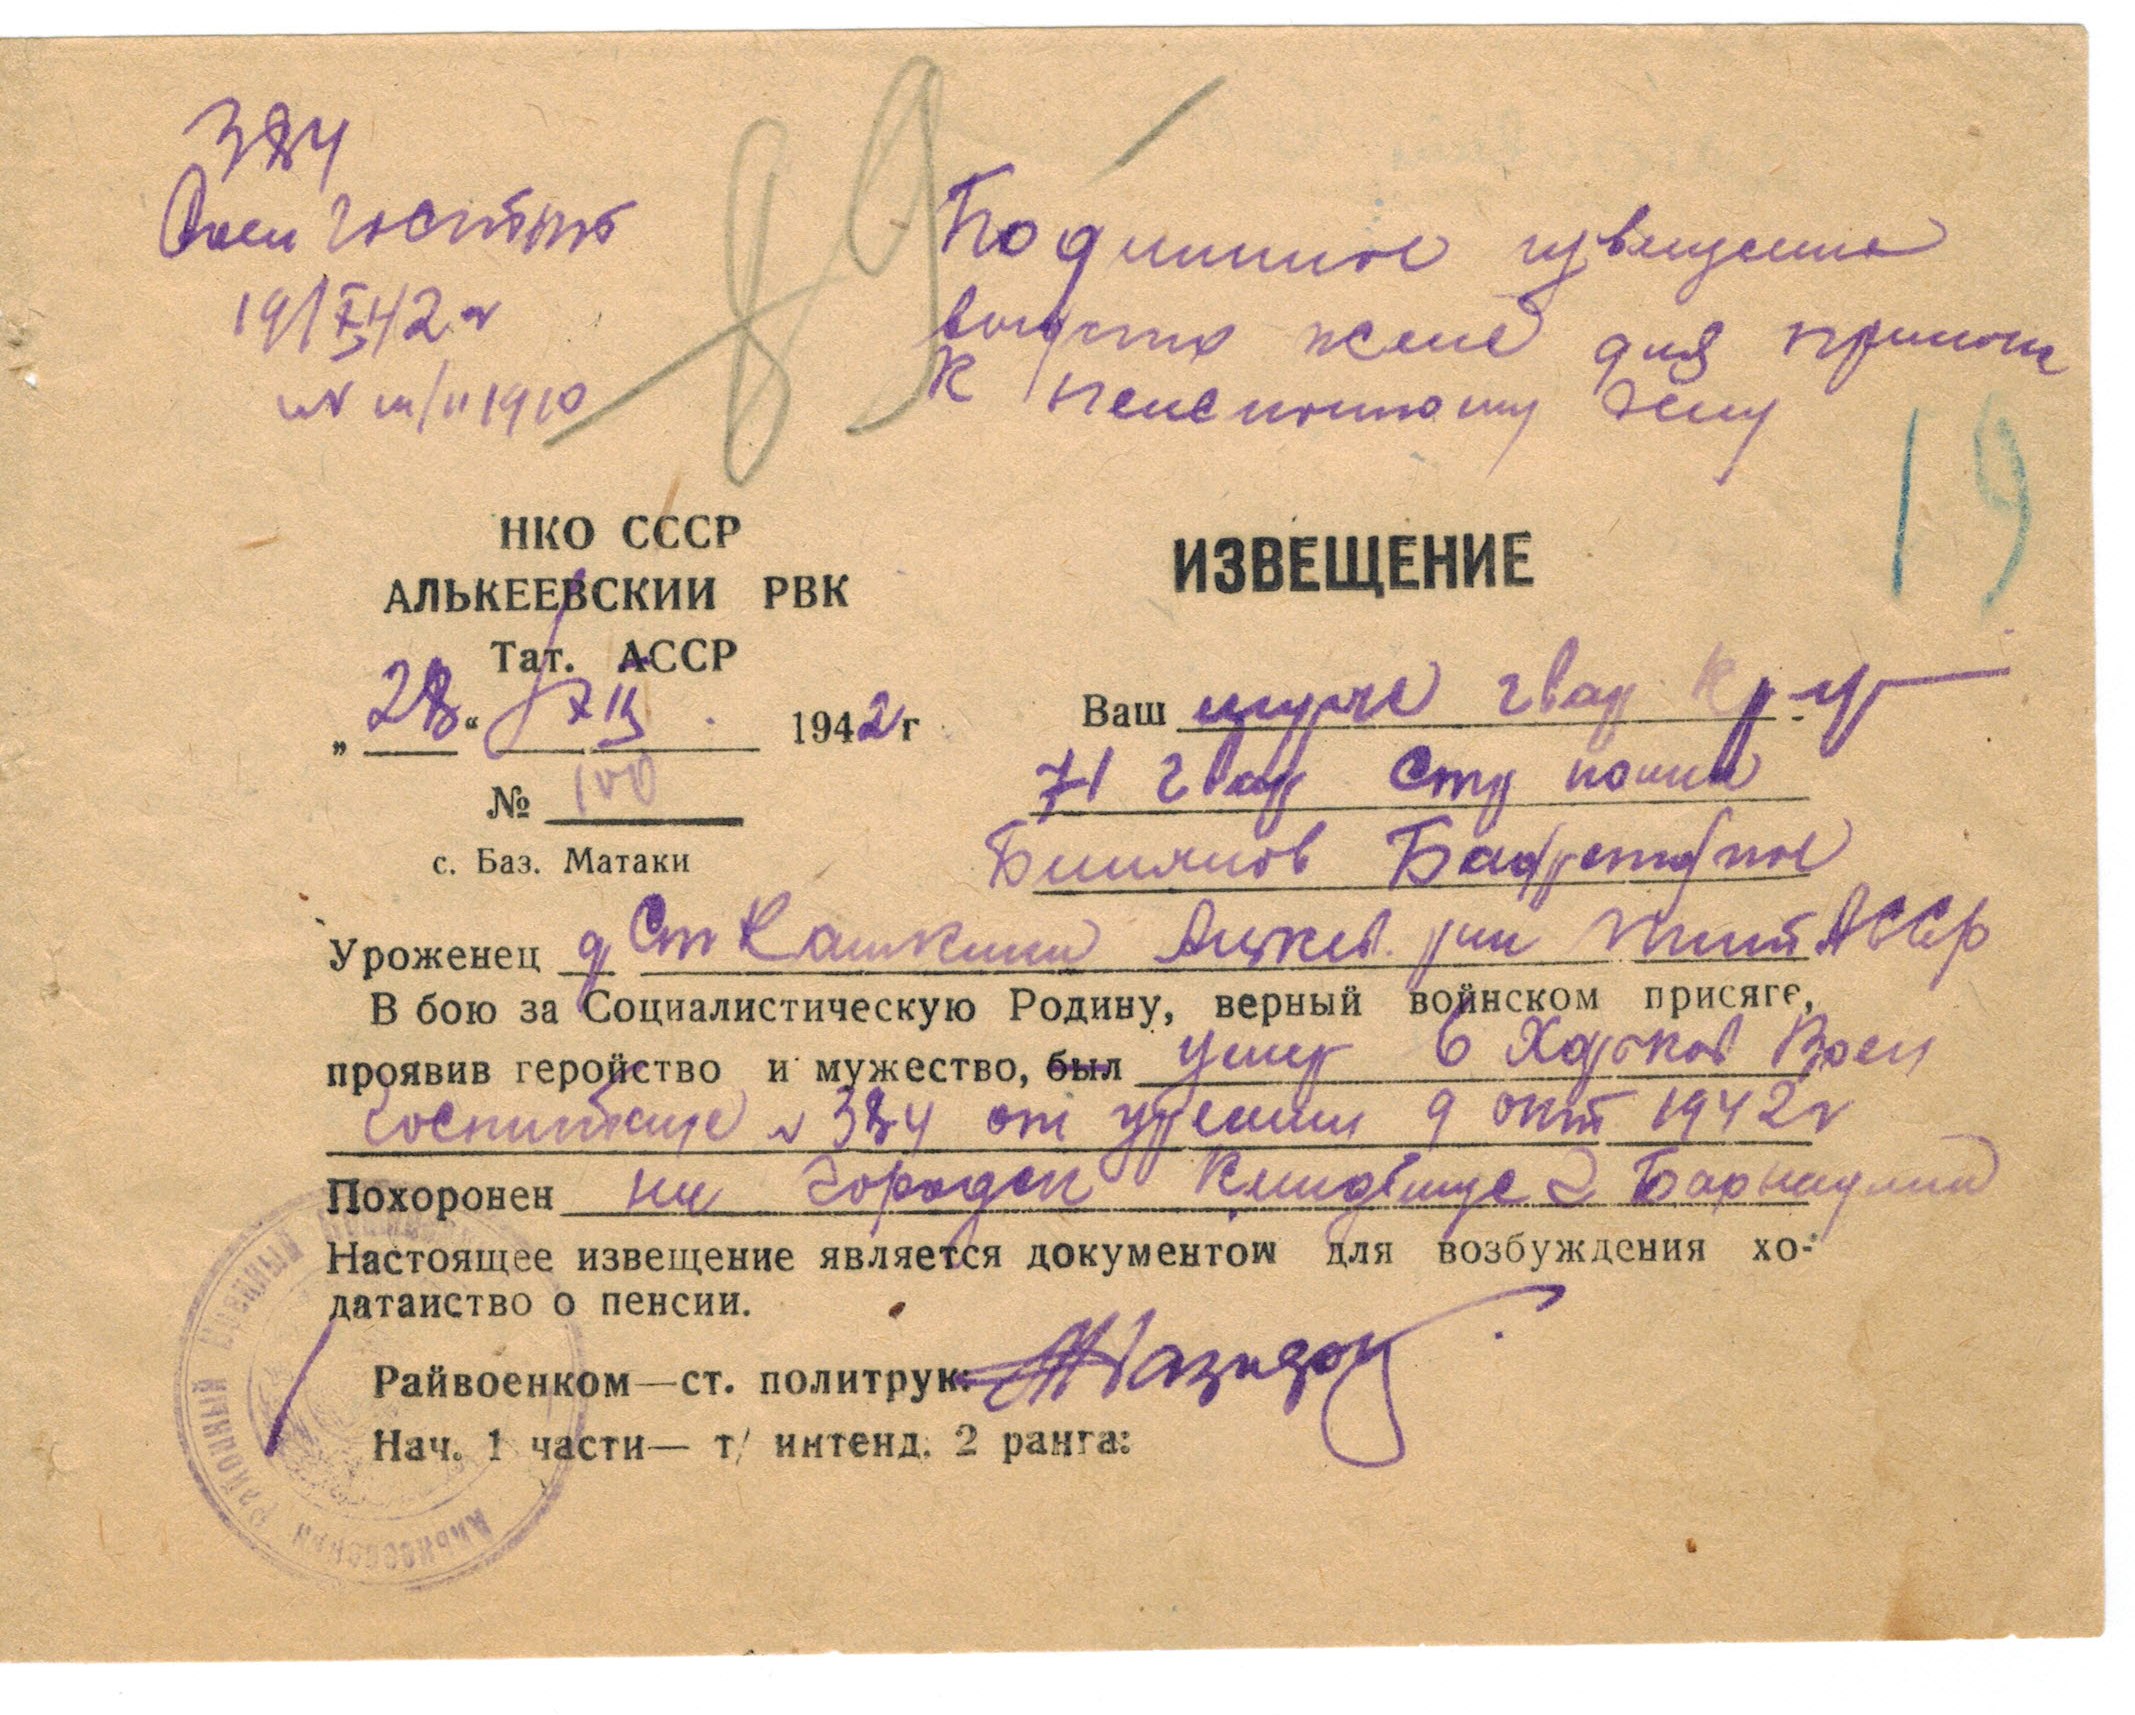 384
19/XI 42 г
1910
89
Подлинное извещение
выдано жене для прилож
к пенсионному делу
19
НКО СССР
АЛЬКЕЕВСКИИ РВК
Тат. АССР
„28“ XII 1942 г
№ 100
с. Баз. Матаки
ИЗВЕЩЕНИЕ
Ваш муж гвар кр-ц
71 гвар стр полка
Билялов
Уроженец д Ст Камкина Алькев. р-на Тат АССР
В бою за Социалистическую Родину, верный войнском присяге,
проявив геройство и мужество, был умер в Харьков Воен
госпитале № 384 от 9 окт 1942 г
Похоронен на городск кладбище г Барнаула
Настоящее извещение является документом для возбуждения хо-
датаиство о пенсии.
Райвоенком—ст. политрук:
Нач. 1 части— т/ интенд. 2 ранга: